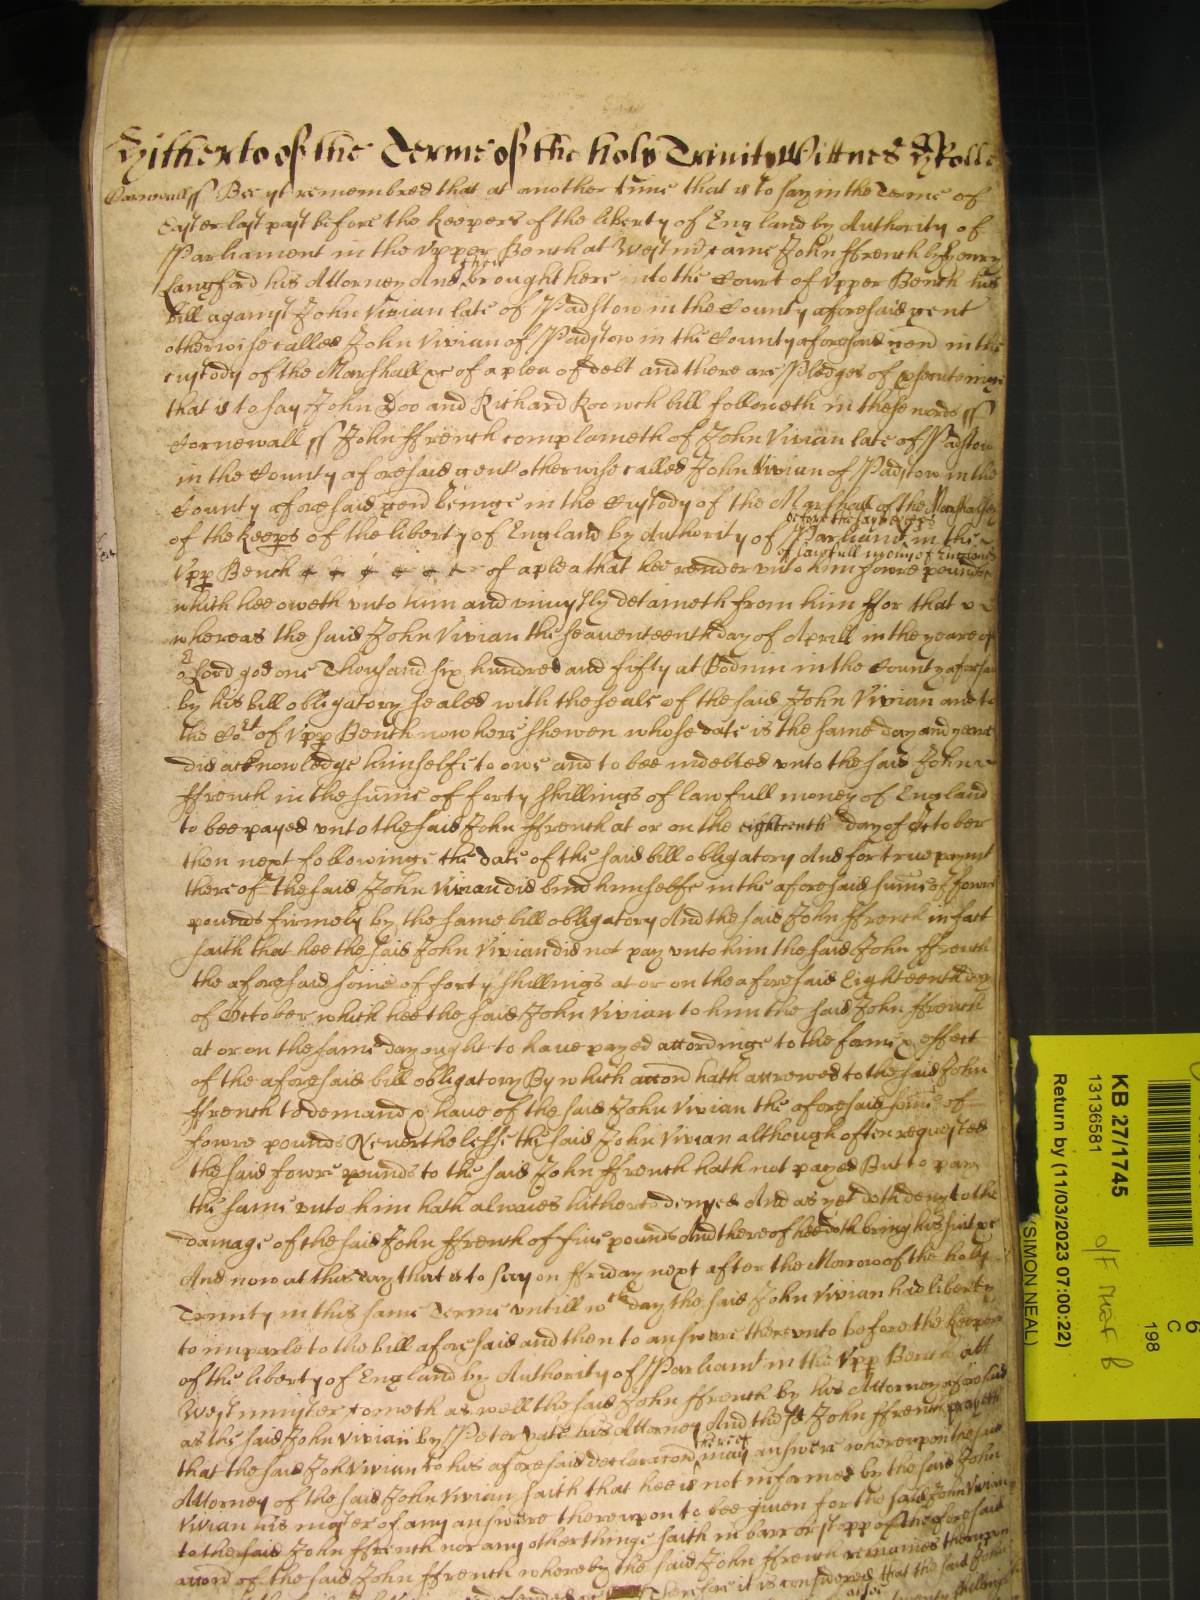 Hitherto of the Terme of the holy Trinity Wittnes H Rolle
Cornewall ss Bee yt remembred that at another time that is to say in the Terme of
Easter last past before the keepers of the liberty of England by Authority of
Parliament in the Upper Bench at Westm̃ came John ffrench by Henry
Langford his Attorney And then brought here into the Court of Upper Bench his
bill against John Vivian late of Padstow in the County aforesaid gent
otherwise called John Vivian of Padstow in the County aforesaid gen̄ in the
custody of the Marshall &c of a plea of debt and there are Pledges of prosecuteinge
that is to say John Doo and Richard Roo wch bill followeth in these words ss
Cornewall ss John ffrench complaineth of John Vivian late of Padstow
in the County aforesaid gent otherwise called John Vivian of Padstow in the
County aforesaid gen̄ beinge in the Custody of the Marshall of the Marshalsey
before the said keepers
of the keeps of the liberty of England by Authority of Parliam̃ in the
of lawfull mony of England
Upp Bench of a plea that hee render unto him fowre pounds
which hee oweth unto him and uniustly detaineth from him ffor that
whereas the said John Vivian the seaventeenth day of Aprill in the yeare of
or Lord god one Thousand six hundred and fifty at Bodmin in the County aforesaid
by his bill obligatory sealed with the seale of the said John Vivian and to
the Cort of Upp Bench now here shewen whose date is the same day and yeare
did acknowledge himselfe to owe and to bee indebted unto the said John
ffrench in the summe of forty shillings of lawfull money of England
to bee payed unto the said John ffrench at or on the eighteenth day of October
then next followinge the date of the said bill obligatory And for true paymt
thereof the said John Vivian did bind himselfe in the aforesaid summe of fowre
pounds firmely by the same bill obligatory And the said John ffrench in fact
saith that hee the said John Vivian did not pay unto him the said John ffrench
the aforesaid some of forty shillings at or on the aforesaid Eighteenth day
of October which hee the said John Vivian to him the said John ffrench
at or on the same day ought to have payed accordinge to the forme & effect
of the aforesaid bill obligatory By which accon̄ hath accrewed to the said John
ffrench to demand & have of the said John Vivian the aforesaid some of
fowre pounds Neverthelesse the said John Vivian although often requested
the said fowre pounds to the said John ffrench hath not payed But to pay
the same unto him hath alwaies hitherto denyed And as yet doth deny to the
damage of the said John ffrench of five pounds And thereof hee doth bring his suit &c
And now at this day that is to say on ffriday next after the Morrow of the holy
Trinity in this same Terme untill wch day the said John Vivian had liberty
to imparle to the bill aforesaid and then to answere thereunto before the keepers
of the liberty of England by Authority of Parliamt in the Upp Bench att
Westminster cometh as well the said John ffrench by his Attorney aforesaid
as the said John Vivian by Peter his Attorney And the sd John ffrench prayeth
that the said John Vivian to his aforesaid declaracon̄ thereof may answere whereupon the said
Attorney of the said John Vivian saith that hee is not informed by the said John
Vivian his master of any answere thereupon to bee given for the said John Vivian
to the said John ffrench nor any other thinge saith in barr or stopp of the foresaid
accon̄ of the said John ffrench whereby the said John ffrench remaines thereupon
Therefore it is considered that the said John
twenty shillings
KB 27/1745
13136581
Return by (11/03/2023 07:00:22)
(SIMON NEAL)
C
198